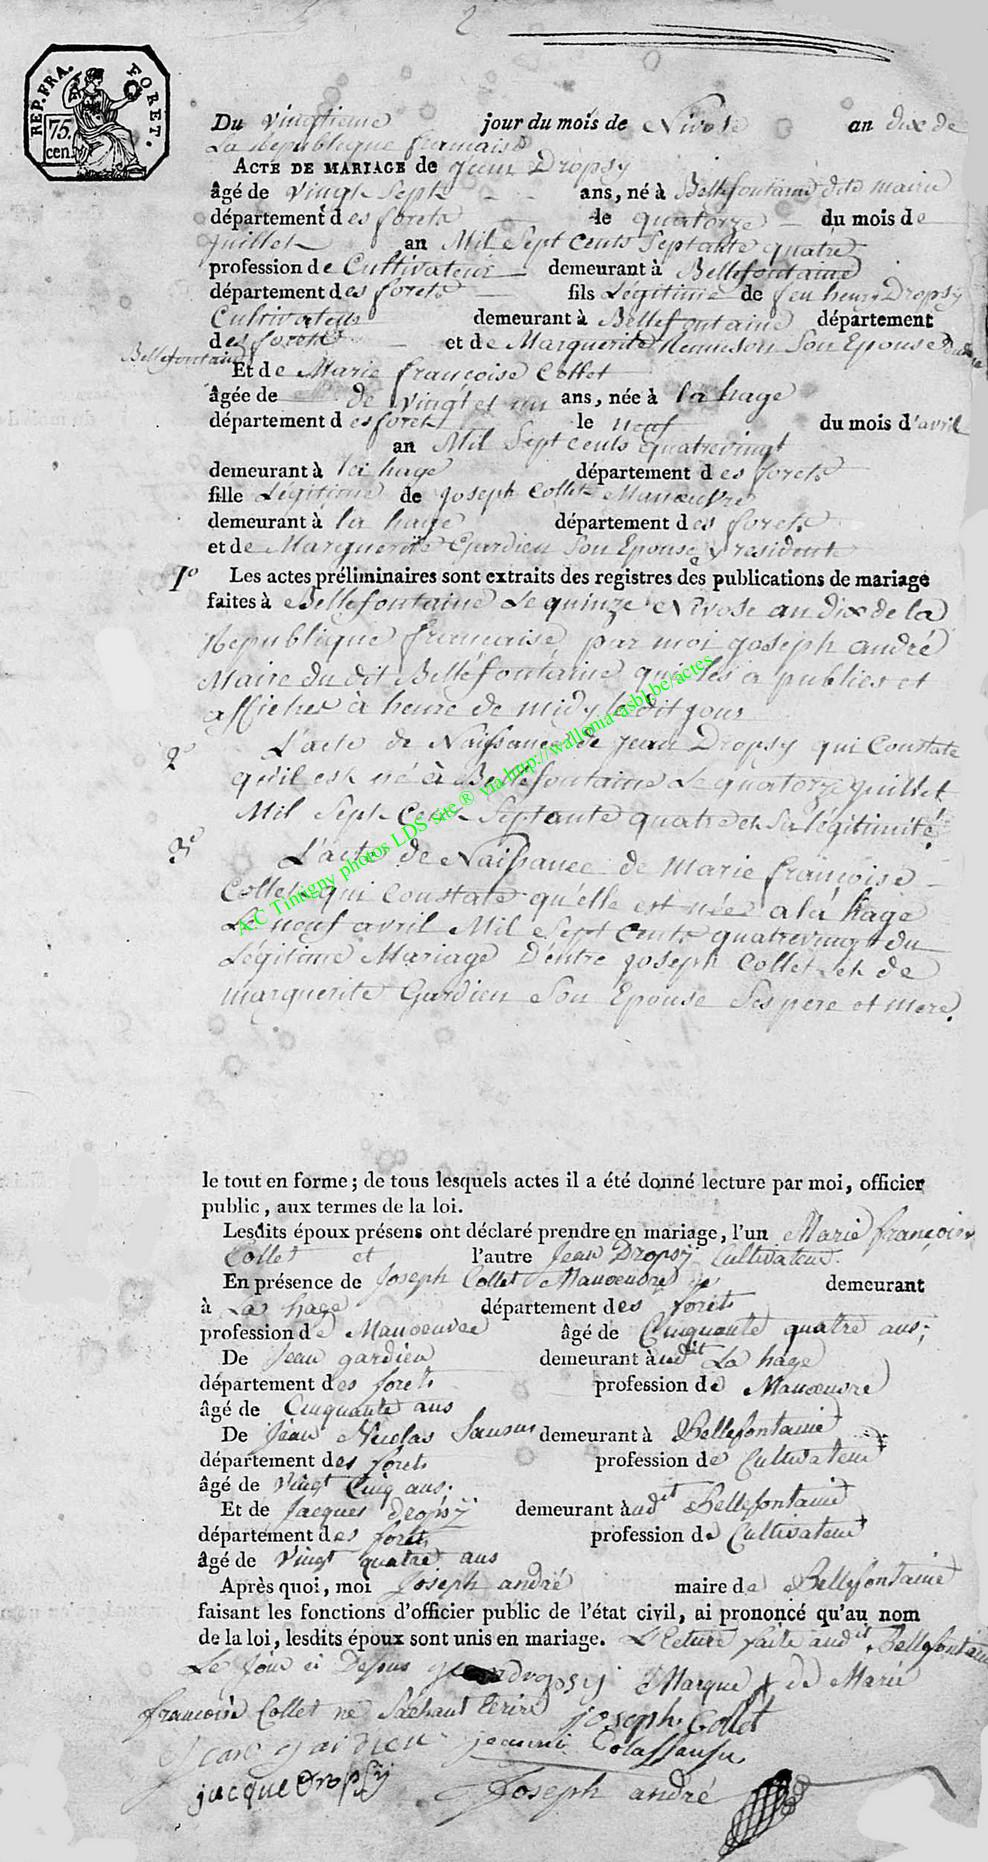 2
REP. FRA. FORET.
75. cen.
Du vingtieme jour du mois de Nivose an dix de
La République française
ACTE DE MARIAGE de jean Dropsy
âgé de vingt Sept ans, né à Bellefontaine dite mairie
département des forets le quatorze du mois de
juillet an Mil Sept Cents Septante quatre
profession de Cultivateur demeurant à Bellefontaine
département des forets fils Légitime de feu henri Dropsy
Cultivateur demeurant à Bellefontaine département
des forets et de Marguerite Son Epouse
Bellefontaine
Et de Marie françoise Collet
âgée de de vingt et un ans, née à la hage
département des forets le neuf du mois d'avril
an Mil Sept Cents quatrevingt
demeurant à la hage département des forets
fille Légitime de joseph Collet Manœuvre
demeurant à la hage département des forets
et de Marguerite Gardien Son Epouse y résidente
1° Les actes préliminaires sont extraits des registres des publications de mariage
faites à Bellefontaine Le quinze Nivose an dix de la
République française par moi joseph andré
Maire du dit Bellefontaine qui les a publies et
affiches à heure de midy ledit jour
2° L'acte de Naissance de jean Dropsy qui Constate
qu'il est né à Bellefontaine Le quatorze juillet
Mil Sept Cents Septante quatre et Sa légitimité.
3° L'acte de Naissance de Marie françoise
Collet qui Constate qu'elle est née a la hage
Le neuf avril Mil Sept Cents quatrevingt du
Légitime Mariage D'entre joseph Collet et de
marguerite Gardien Son Epouse Ses pere et mere.
A.C Tintigny photos LDS site ® via http://wallonia-asbl.be/actes
le tout en forme ; de tous lesquels actes il a été donné lecture par moi, officier
public, aux termes de la loi.
Lesdits époux présens ont déclaré prendre en mariage, l'un Marie françoise
Collet et l'autre Jean Dropsy Cultivateur.
En présence de Joseph Collet Manoeuvre demeurant
à La hage département des forets
profession de Manoeuvre âgé de Cinquante quatre ans ;
De Jean gardien demeurant audit La hage
département des forets profession de Manoeuvre
âgé de Cinquante ans
De Jean Nicolas Sansus demeurant à Bellefontaine
département des forets profession de Cultivateur
âgé de Vingt Cinq ans.
Et de Jacques dropsy demeurant audit Bellefontaine
département des forets profession de Cultivateur
âgé de Vingt quatre ans
Après quoi, moi Joseph andré maire de Bellefontaine
faisant les fonctions d'officier public de l'état civil, ai prononcé qu'au nom
de la loi, lesdits époux sont unis en mariage. Lecture faite audit Bellefontaine
Le Jour ci Dessus dropsy Marque de Marie
francoise Collet ne Sachant Ecrire joseph Collet
jean gardien
jacque Dropsÿ Joseph andré